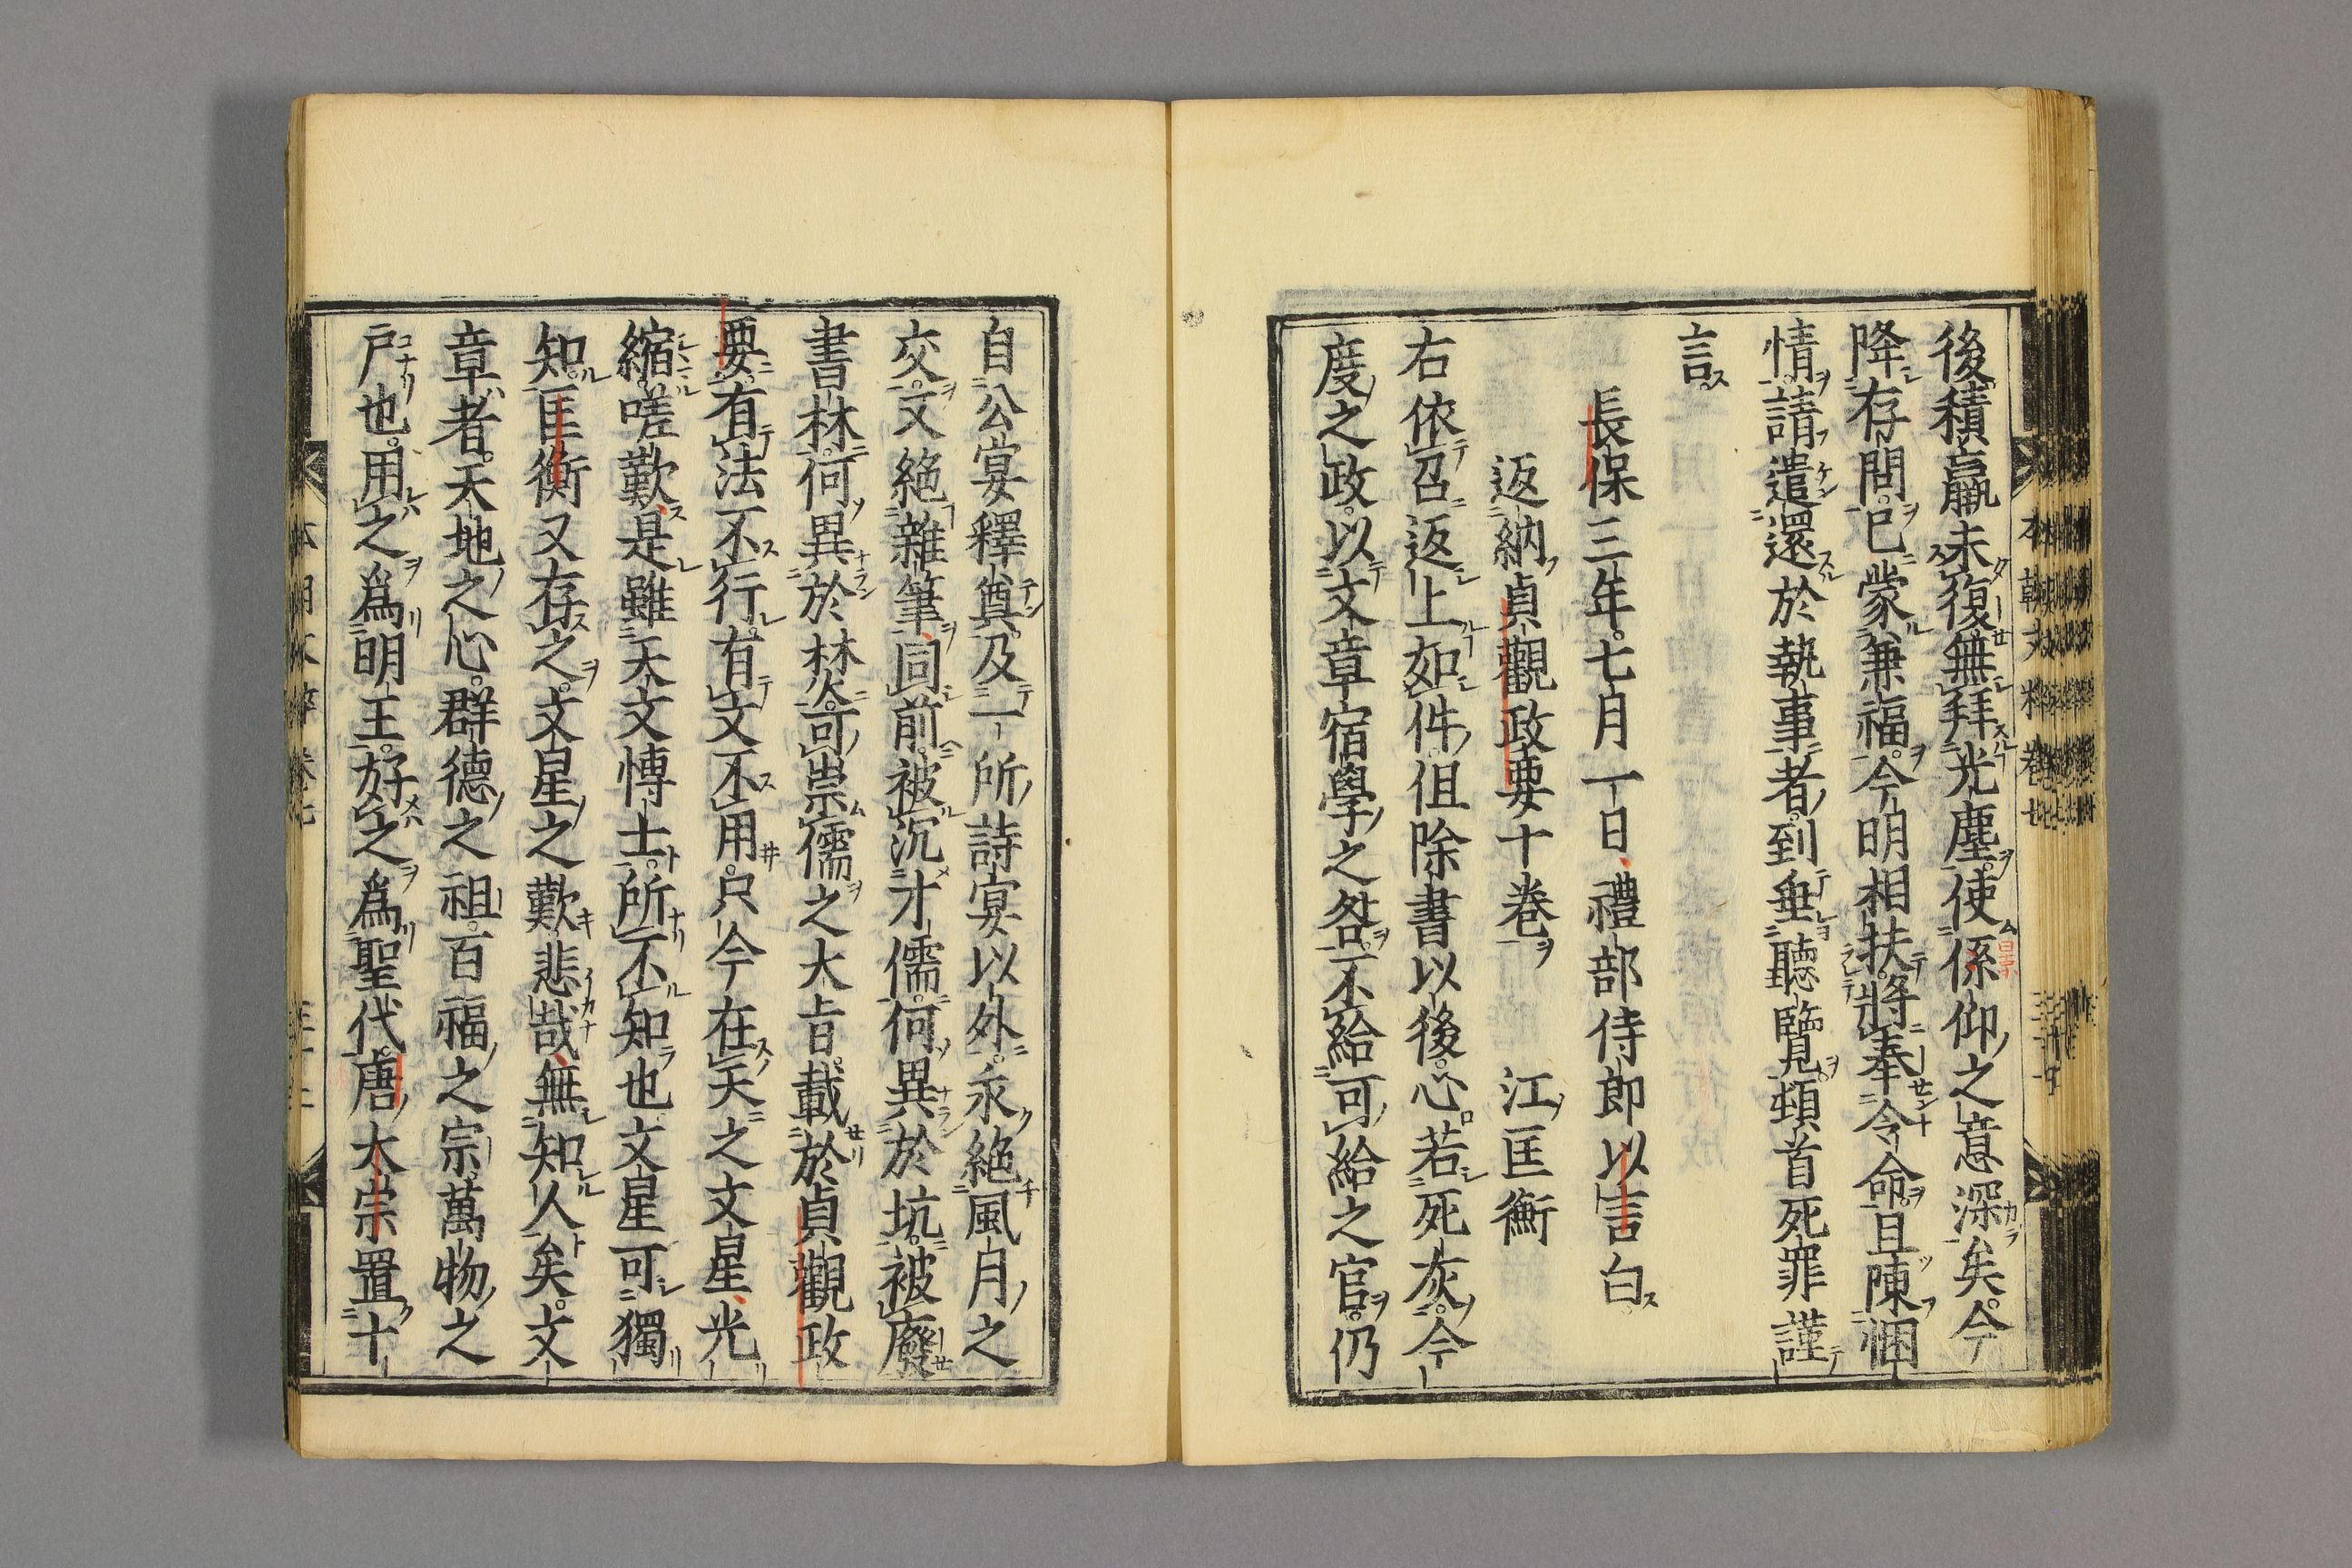 後積羸未復無拜光塵使係仰之意深矣今
降存問已蒙兼福今明相扶將奉令命且陳悃
情請遣還於執事者到垂聽覽頓首死罪謹
言
長保三年七月一日禮部侍郎以言白
返納貞觀政要十卷 江匡衡
右依召返上如件但除書以後心若死灰今
度之政以文章宿學之咎不給可給之官仍
自公宴釋奠及一所詩宴以外永絕風月之
交文絕雜筆同前被沉才儒何異於坑被廢
書林何異於焚炎可崇儒之大旨載於貞觀政
要有法不行有文不用只今在天之文星光
縮嗟歎是雖天文博士所不知也文星可獨
知匡衡又存之文星之歎悲哉無知人矣文
章者天地之心群德之祖百福之宗萬物之
戶也用之爲明王好之爲聖代唐太宗置十